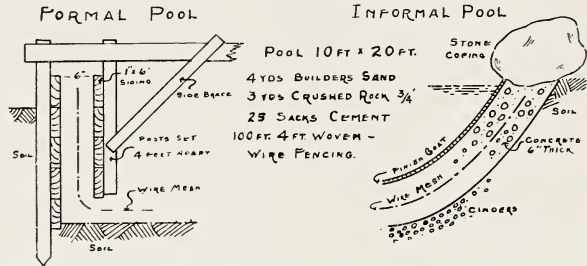 FORMAL POOL
INFORMAL POOL
6"
1" x 6"
SIDING
SIDE BRACE
SOIL
POSTS SET
4 FEET APART
WIRE MESH
SOIL
POOL 10 FT x 20 FT.
4 YDS BUILDERS SAND
3 YDS CRUSHED ROCK 3/4"
25 SACKS CEMENT
100 FT. 4 FT. WOVEN -
WIRE FENCING.
STONE
COPING
SOIL
CONCRETE
6" THICK
FINISH COAT
WIRE MESH
CINDERS